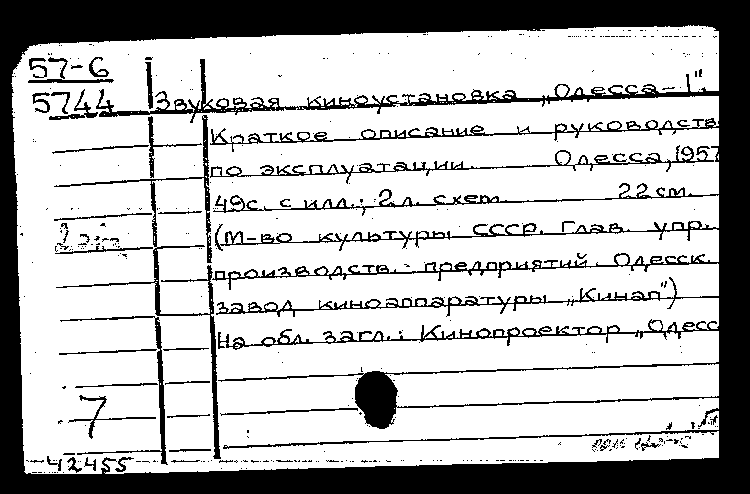 57-6
5744 Звуковая киноустановка „Одесса-1".
Краткое описание и руководств
по эксплуатации. Одесса, 1957
49с. с илл.; 2л. схем. 22см.
(М-во культуры СССР. Глав. упр.
производств. предприятий. Одесск.
завод киноаппаратуры „Кинап")
На обл. загл.: Кинопроектор „Одесс
7
42455